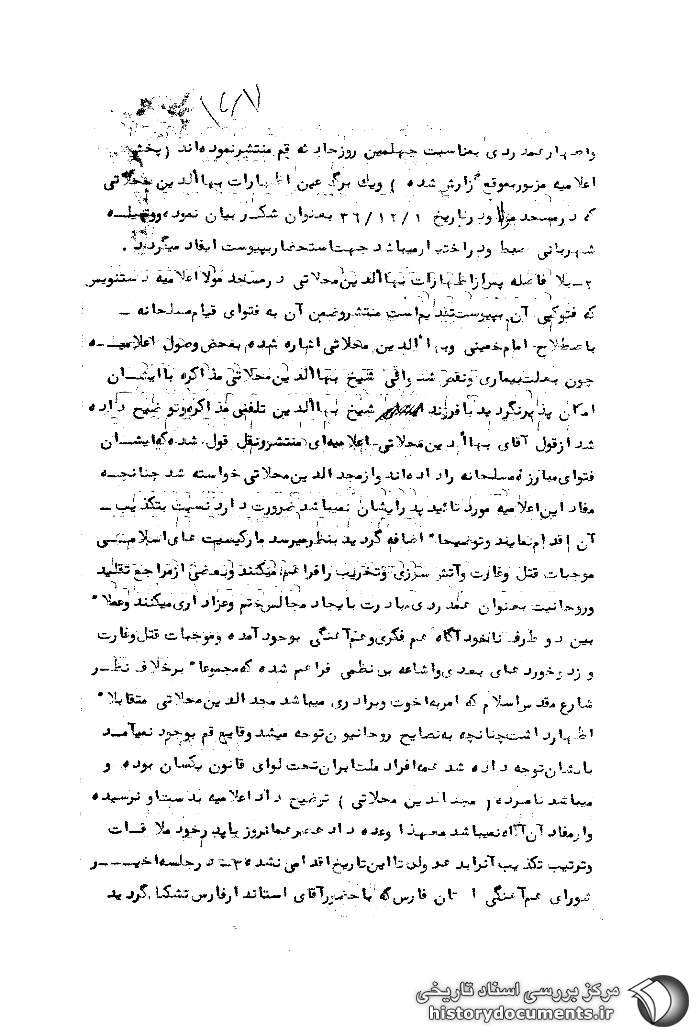 ۱۲/۷
واظهار همدردی بمناسبت چهلمین روز حادثه قم منتشر نموده‌اند (پخش
اعلامیه مزبور بموقع گزارش شده) ویك برگ عین اظهارات بهاالدین محلاتی
که در مسجد مولا ودر تاریخ ۳۶/۱۲/۱ بعنوان تشکر بیان نموده و بوسیله
شهربانی ضبط ودر اختیار میباشد جهت استحضار بپیوست ایفاد میگردد.
۲- بلا فاصله پس از اظهارات بهاالدین محلاتی در مسجد مولا اعلامیه دستنویس
که فتوکپی آن بپیوست تقدیم است منتشر وضمن آن به فتوای قیام مسلحانه -
باصطلاح امام خمینی وبهاالدین محلاتی اشاره شده بمحض وصول اعلامیه
چون بعلت بیماری و شیخ بهاالدین محلاتی مذاکره با ایشان
امکان پذیر نگردید با فرزند شیخ بهاالدین تلفنی مذاکره وتوضیح داده
شد از قول آقای بهاالدین محلاتی اعلامیه‌ای منتشر ونقل قول شده که ایشان
فتوای مبارزه مسلحانه را داده‌اند واز مجدالدین محلاتی خواسته شد چنانچه
مفاد این اعلامیه مورد تائید پدر ایشان نمیباشد ضرورت دارد نسبت بتکذیب -
آن اقدام نمایند وتوضیحا" اضافه گردید بنظر میرسد مارکسیست های اسلامی
موجبات قتل وغارت وآتش سوزی وتخریب را فراهم میکنند وبعضی از مراجع تقلید
وروحانیت بعنوان همدردی مبادرت بایجاد مجالس ختم وعزاداری میکنند وعملا"
بین دو طرف ناخودآگاه هم فکری وهم‌آهنگی بوجود آمده وموجبات قتل وغارت
و زد وخورد های بعدی واشاعه بی نظمی فراهم شده که مجموعا" برخلاف نظر
شارع مقدس اسلام که امر به اخوت وبرادری میباشد مجدالدین محلاتی متقابلا"
اظهار داشت چنانچه به نصایح روحانیون توجه میشد وقایع قم بوجود نمیآمد
بایشان توجه داده شد همه افراد ملت ایران تحت لوای قانون یکسان بوده و
میباشد نامبرده (مجدالدین محلاتی) توضیح داد اعلامیه بدست او نرسیده
واز مفاد آن آگاه نمیباشد معهذا وعده داد عصر همانروز با پدر خود ملاقات
وترتیب تکذیب آنرا بدهد ولی تا این تاریخ اقدامی نشده ۳- در جلسه اخیر
شورای هم‌آهنگی استان فارس که با حضور آقای استاندار فارس تشکیل گردید
مرکز بررسی اسناد تاریخی
historydocuments.ir